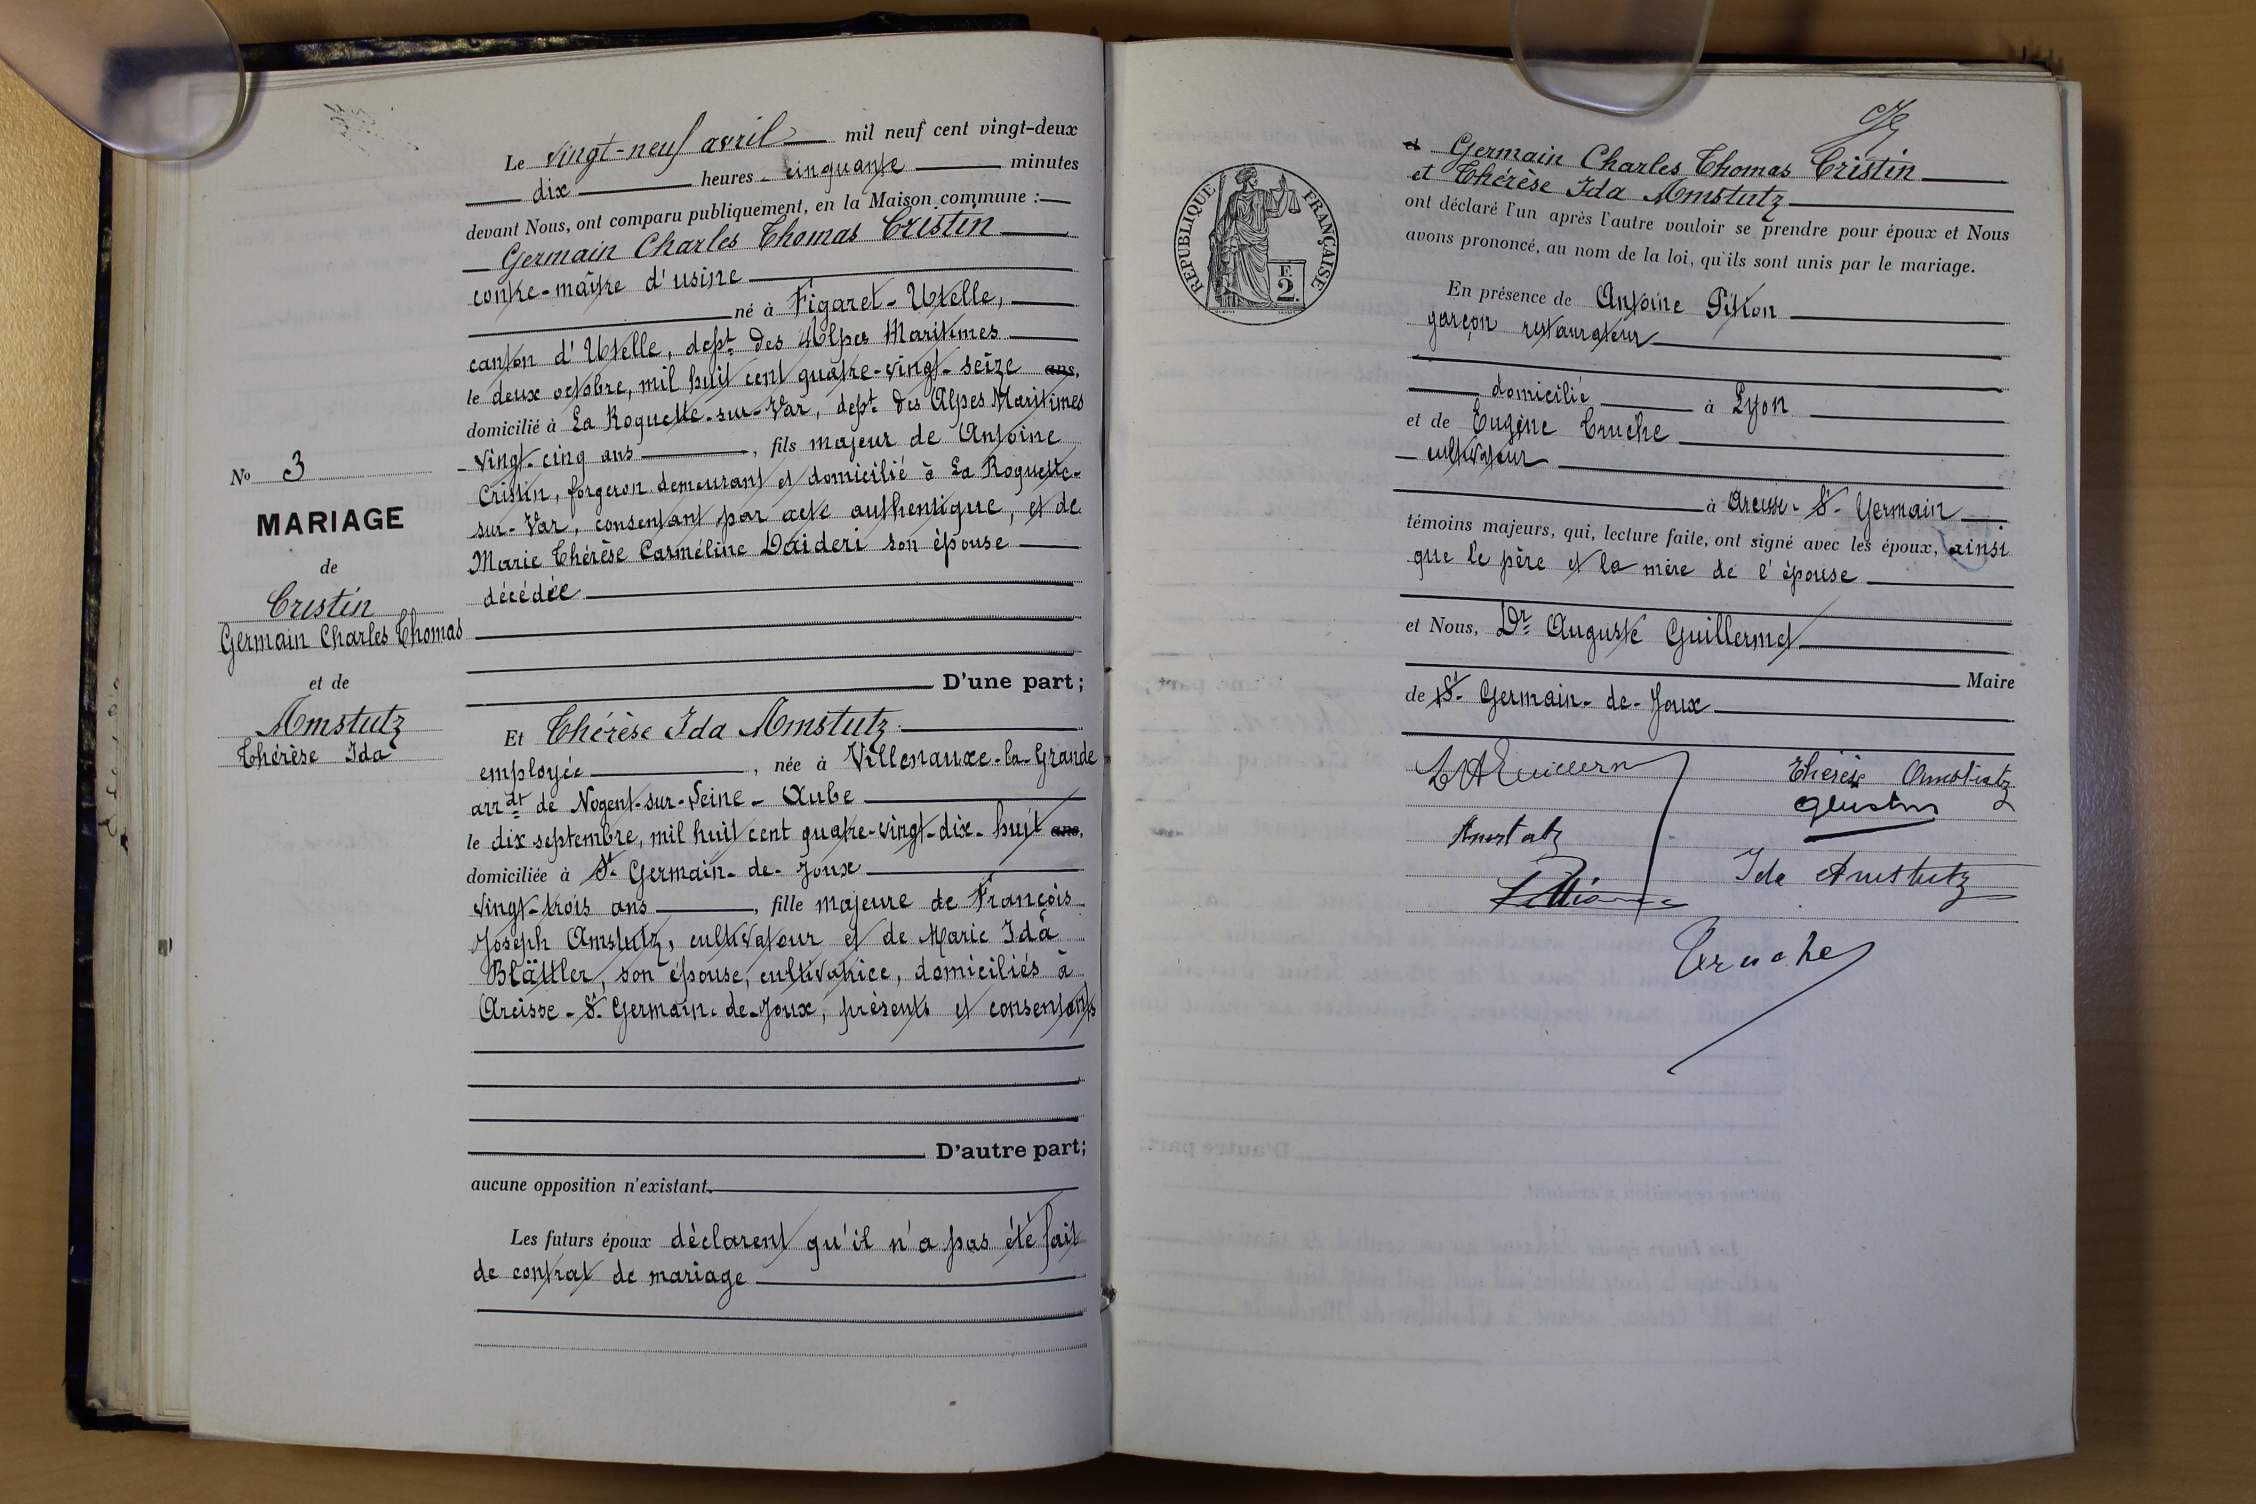 Le vingt-neuf avril mil neuf cent vingt-deux
dix heures cinquante minutes
devant Nous, ont comparu publiquement, en la Maison commune :
Germain Charles Thomas Cristin
contre-maître d'usine
né à Figaret-Utelle,
canton d'Utelle, dept des Alpes Maritimes
le deux octobre, mil huit cent quatre-vingt-seize ans,
domicilié à La Roquette-sur-Var, dept des Alpes Maritimes
vingt-cinq ans, fils majeur de Antoine
Cristin, forgeron demeurant et domicilié à La Roquette-
sur-Var, consentant par acte authentique, et de
Marie Thérèse Carméline Daideri son épouse
décédée
D'une part;
No 3
MARIAGE
de
Cristin
Germain Charles Thomas
et de
Amstutz
Thérèse Ida
Et Thérèse Ida Amstutz
employée, née à Villenauxe-la-Grande
arrdt de Nogent-sur-Seine - Aube
le dix septembre, mil huit cent quatre-vingt-dix-huit ans,
domiciliée à St Germain-de-Joux
vingt-trois ans, fille majeure de François
Joseph Amstutz, cultivateur et de Marie Ida
Blättler, son épouse, cultivatrice, domiciliés à
-St Germain-de-Joux, présents et consentants
D'autre part;
aucune opposition n'existant.
Les futurs époux déclarent qu'il n'a pas été fait
de contrat de mariage
RÉPUBLIQUE FRANÇAISE
F.
2.
et Germain Charles Thomas Cristin
et Thérèse Ida Amstutz
ont déclaré l'un après l'autre vouloir se prendre pour époux et Nous
avons prononcé, au nom de la loi, qu'ils sont unis par le mariage.
En présence de Antoine
garçon restaurateur
domicilié à Lyon
et de Eugène Truche
cultivateur
à St Germain
témoins majeurs, qui, lecture faite, ont signé avec les époux, ainsi
que le père et la mère de l'épouse
et Nous, Dr Auguste Guillermet
Maire
de St Germain-de-Joux
Thérèse Amstutz
Amstutz
Ida Amstutz
Truche